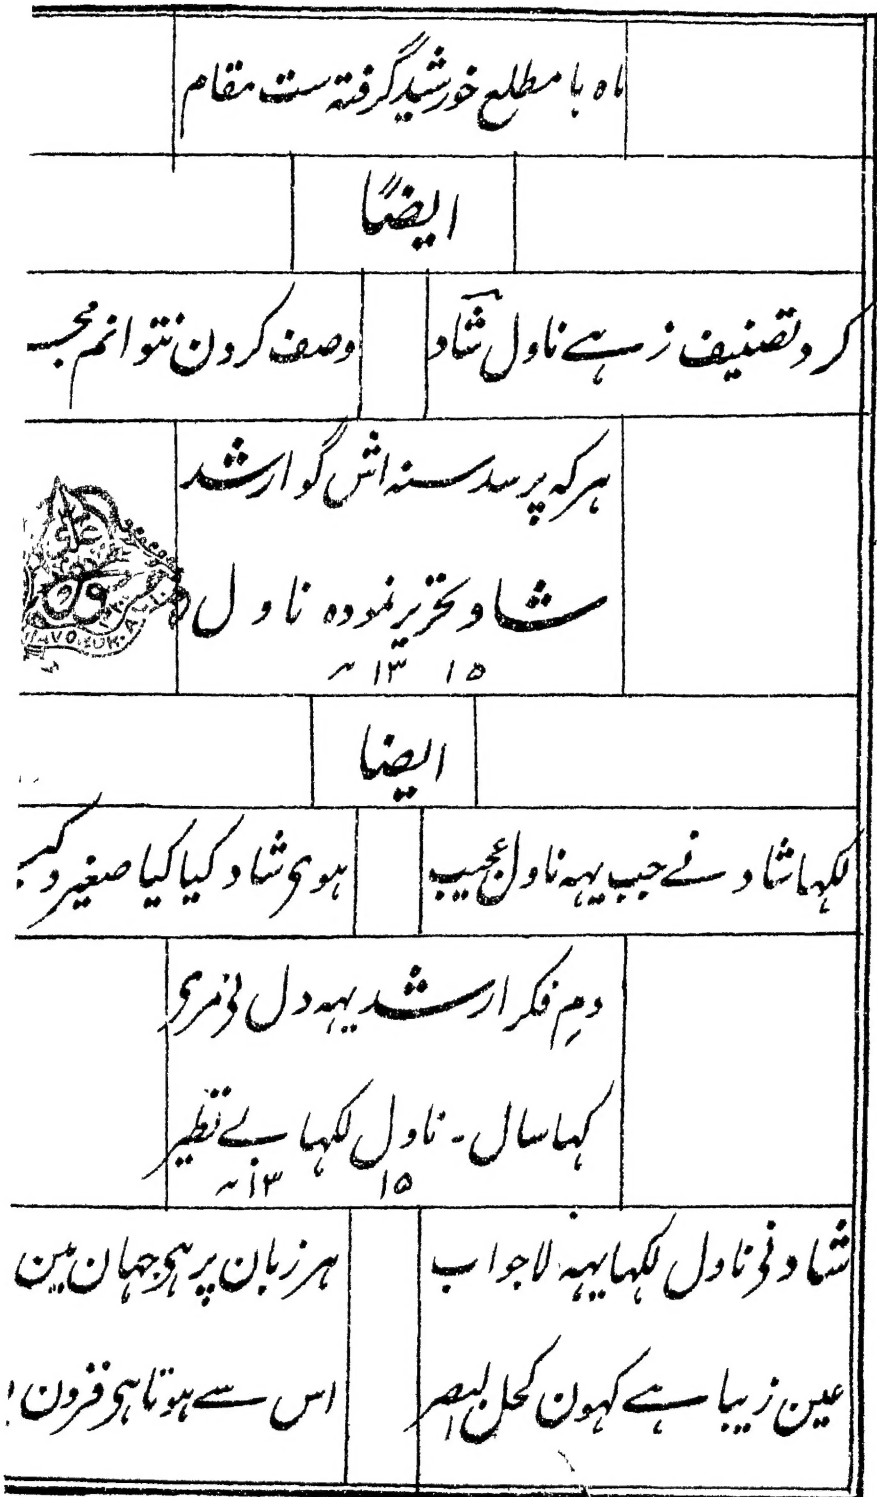 ماہ با مطلع خورشید گرفتہ ست مقام
ایضاً
کرد تصنیف زہے ناول شاد
وصف کردن نتوانم
ہرکہ پرسد سنہ اش گو ارشد
شاد تحریر نمودہ ناول
۱۵ ۱۳ ھ
ایضا
لکہا شاد نے جب یہہ ناول عجیب
ہوی شاد کیا کیا صغیر و کبیر
دمِ فکر ارشد یہہ دل نی مری
کہا سال - ناول لکہا بے نظیر
۱۵ ۱۳ ھ
شاد نی ناول لکہا یہہ لاجواب
ہر زبان پر ہی جہان مین
عین زیبا ہے کہون کحل البصر
اس سے ہوتا ہی فزون